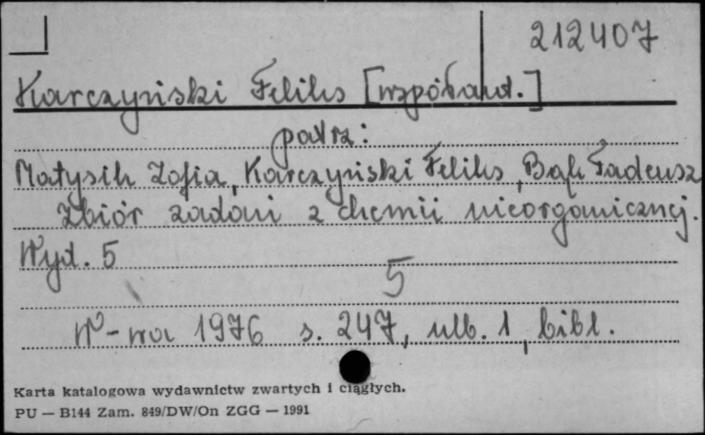 212407
Karczyński Feliks [współaut.]
patrz:
Matysik Zofia, Karczyński Feliks, Bąk Tadeusz
Zbiór zadań z chemii nieorganicznej.
Wyd. 5
5
W-wa 1976 s. 247, nlb. 1, bibl.
Karta katalogowa wydawnictw zwartych i ciągłych.
PU — B144 Zam. 849/DW/On ZGG — 1991